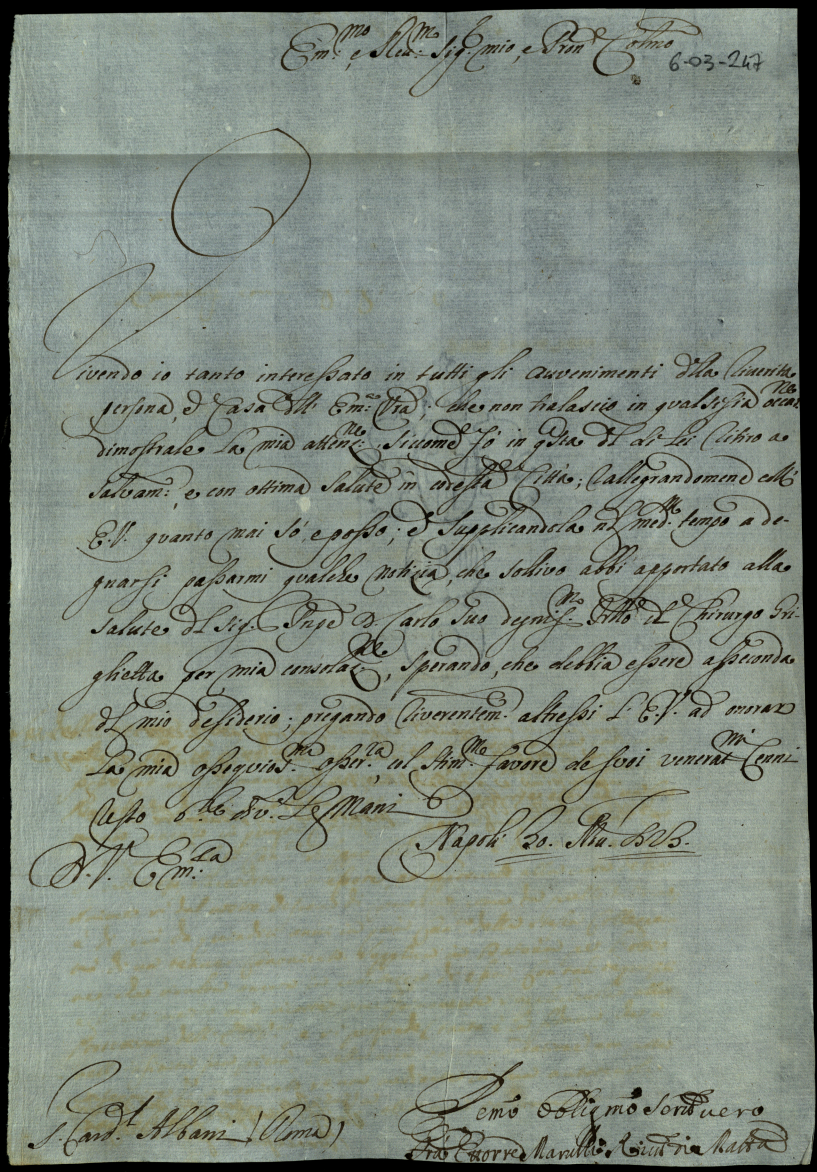 Em:mo, e Reu:mo Sig.r mio, e Pron Colmo
6-03-247
Vivendo io tanto interessato in tutti gli auvenimenti d'lla Riverita
persona, e Casa dll' Em:za Vra, che non tralascio in qualsisia occas:ne
dimostrale la mia atten:ne, siccome fò in qsta dl di Lei ritiro a
salvam:, e con ottima salute in codesta Città; rallegrandomene coll'
E.V. quanto mai sò, e posso; e supplicandola nl med:mo tempo a de-
gnarsi passarmi qualche notizia, che sollivo abbi apportato alla
salute dl Sig.r D. Carlo suo degniss:mo il Chirurgo Gri-
ghetta per mia consolaz:ne, sperando, che debbia essere asseconda
dl mio desiderio; pregando riverentem: altressi l'E.V. ad onorar
la mia ossequios:ma osser:za, col stim:mo favore de suoi venerat:mi Cenni
resto le Mani
D.V. Em:za
Napoli
S. Card.l Albani (Roma)
Demo Obligmo Serv vero
Fra Ettorre Marulli Malta